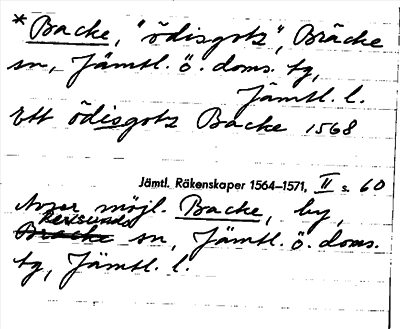 * Backe, "ödisgotz", Bräcke
sn, Jämtl. ö. doms. tg,
Jämtl. l.
Ett ödisgotz Backe 1568
Jämtl. Räkenskaper 1564–1571, II s. 60
Avser möjl. Backe, by,
Revsunds
Bräcke sn, Jämtl. ö. doms.
tg, Jämtl. l.